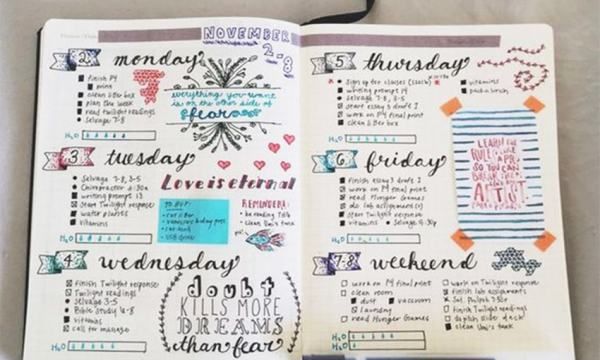 NOVEMBER
2-8
2 monday
finish P4
print
clean litter box
plan the week
read twilight readings
selvage 7-8
H2O
everything you want
is on the other side of
fear
3 tuesday
Selvage 7-8, 3-5
Chiropractor
writing prompt 13
Start Twilight response
water plants
vitamins
H2O
Love is eternal
TO BUY:
cat litter
car wash
USB drive
REMINDERS:
clean Umi's tank
4 wednesday
Finish Twilight response
Twilight readings
Selvage 3-5
Bible Study 6-8
vitamins
call for massage
H2O
doubt
KILLS MORE
DREAMS
than fear
5 thursday
Sign up for classes
writing prompt 14
selvage 7-8, 3-5
start essay 3 draft 1
work on M4 final print
clean litter box
vitamins
pack lunch
H2O
6 friday
finish essay 3 draft 1
work on M4 final print
read Hunger Games
do lab assignment
start Twilight response
vitamins
Selvage 6:30p
H2O
LEARN THE
RULES LIKE
A PRO
SO YOU CAN
BREAK THEM
LIKE AN
ARTIST
7-8 weekend
work on M4 final print
clean room
dust
vacuum
laundry
read Hunger Games
work on Twilight response
finish lab assignments
finish Twilight readings
clean Umi's tank
H2O
H2O